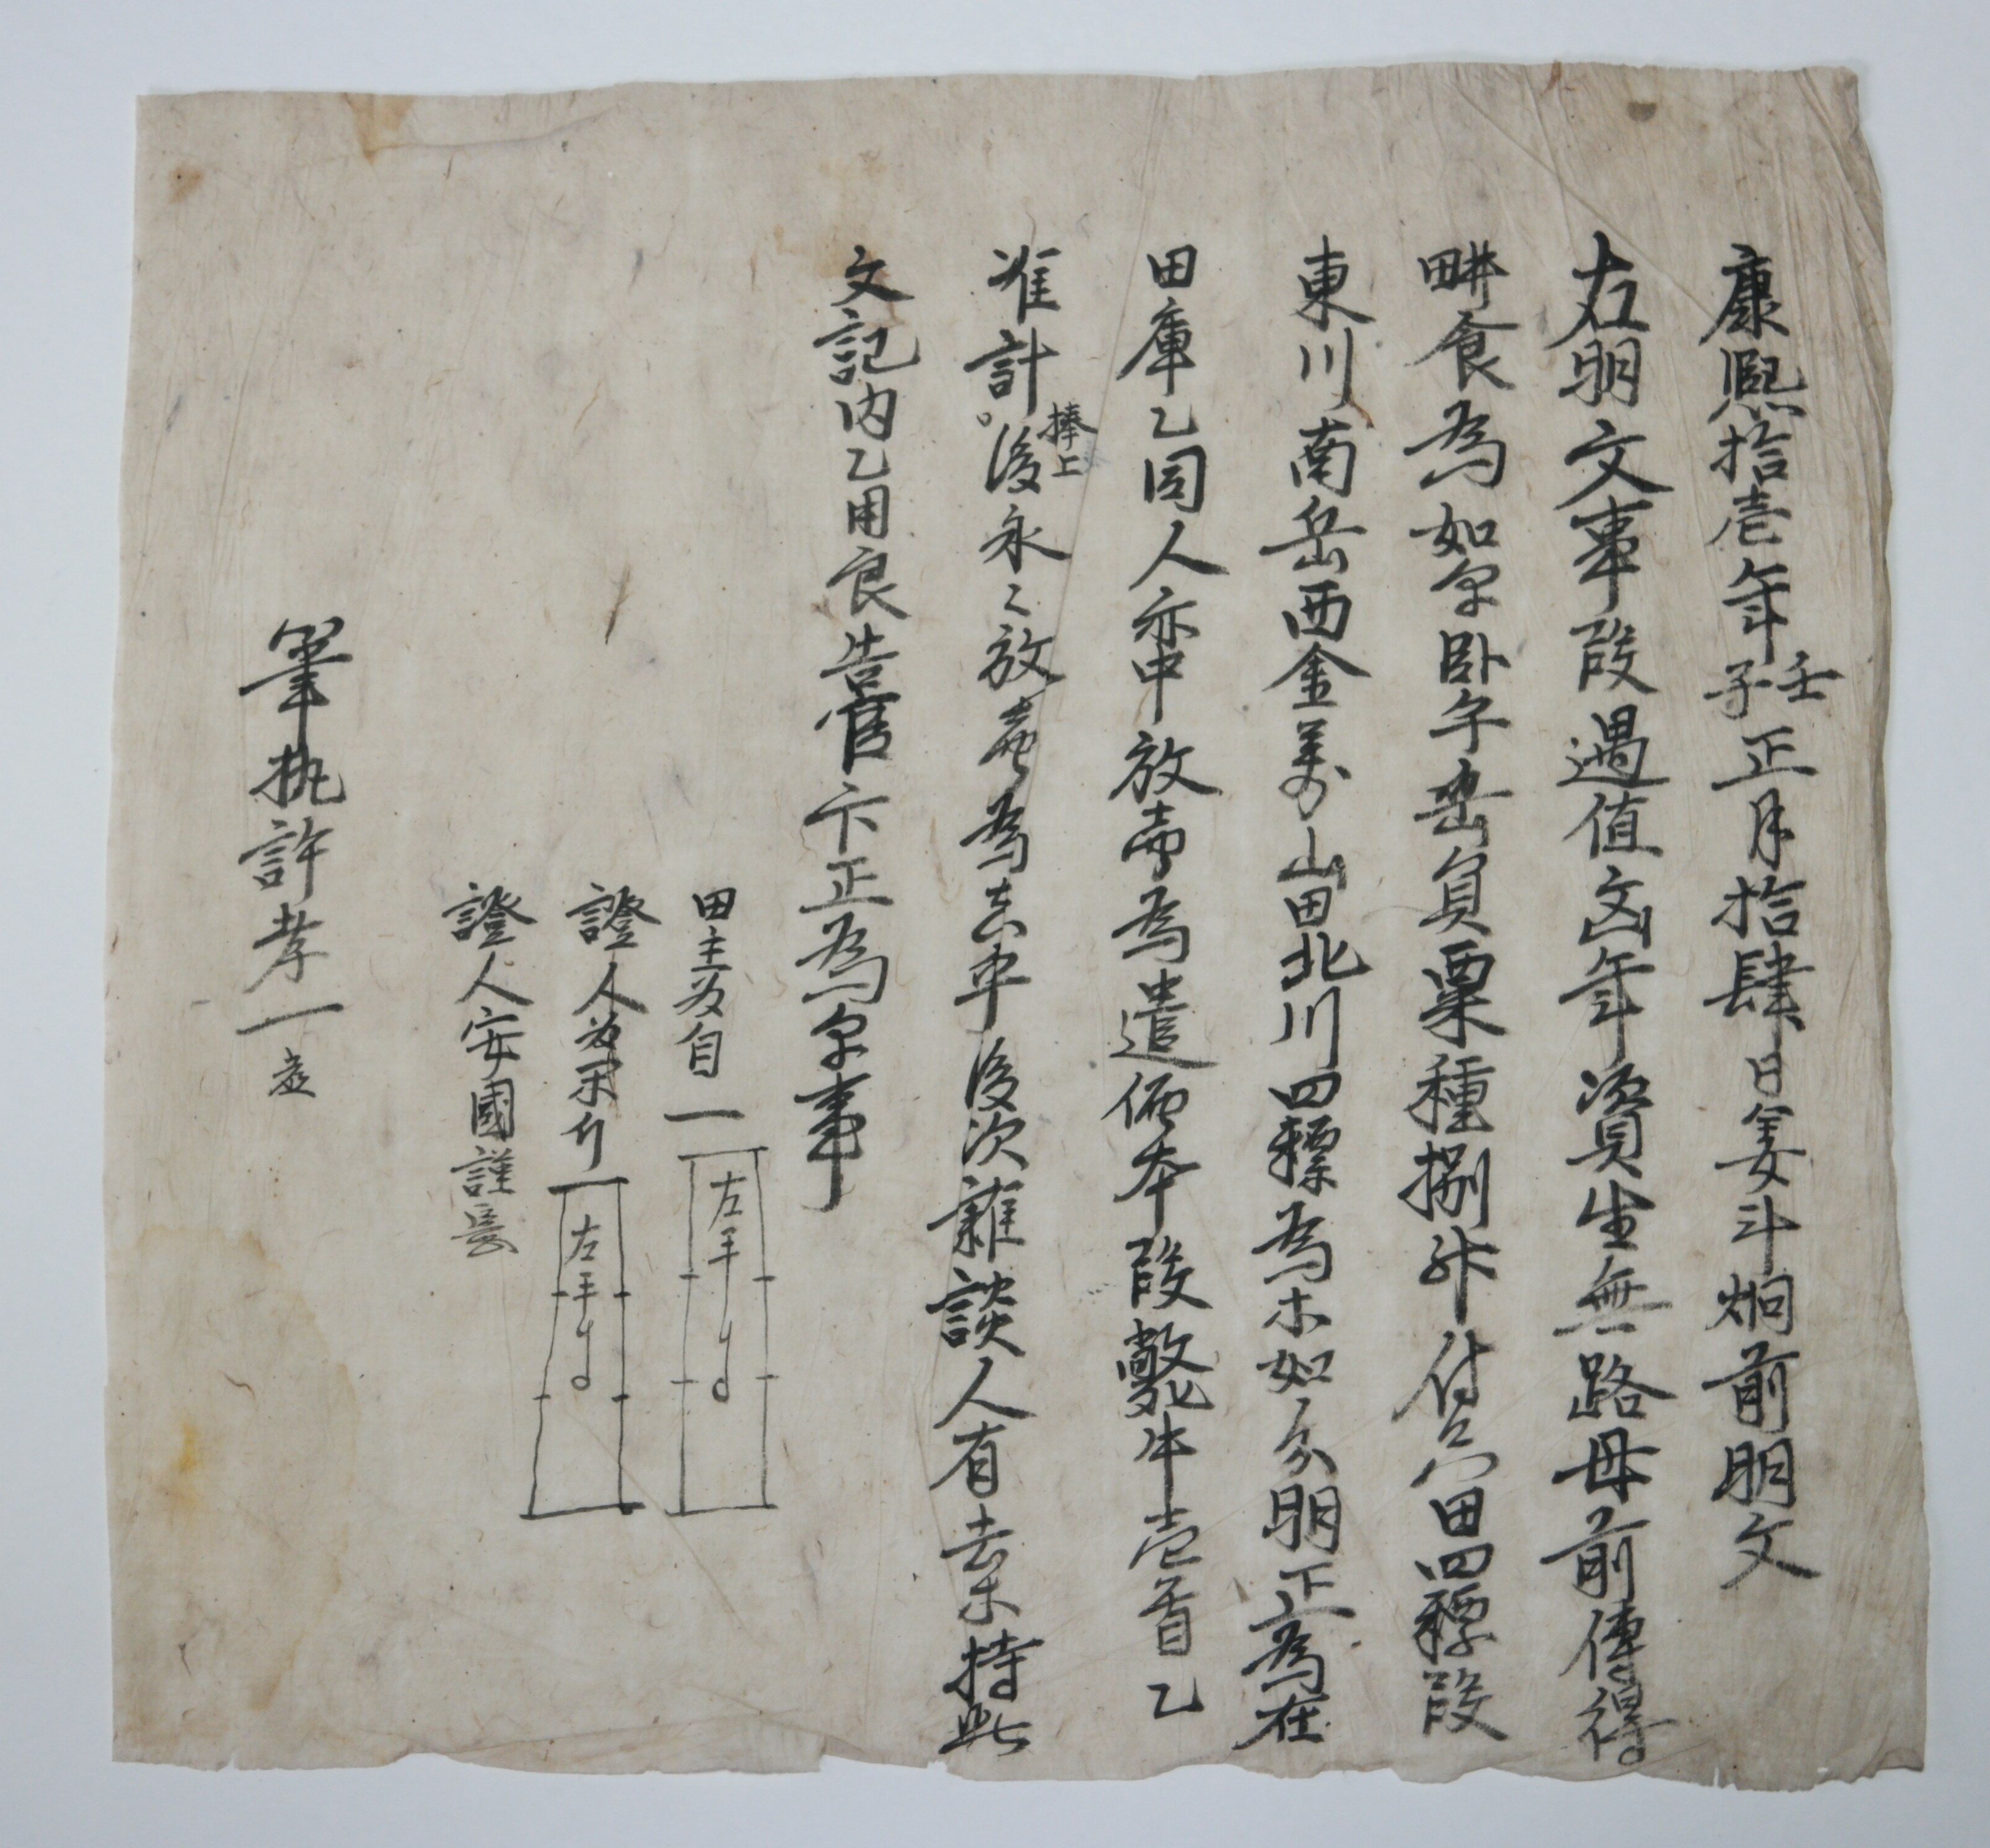 康熙拾壹年壬子正月拾肆日姜斗炯前明文
右明文事段遇值凶年資生無路母前傳得
畊食爲如乎卧乎岳員粟種捌升付只田四標段
東川南岳西金萬山田北川四標爲木如分明正爲在
田庫乙同人亦中放賣爲遣価本段斃牛壱首乙
准計捧上後永〻放賣爲去乎後次雜談人有去木持此
文記內乙用良告官卞正爲乎事
田主 自一 左手寸
證人 左手寸
證人安國謹
筆執許孝一